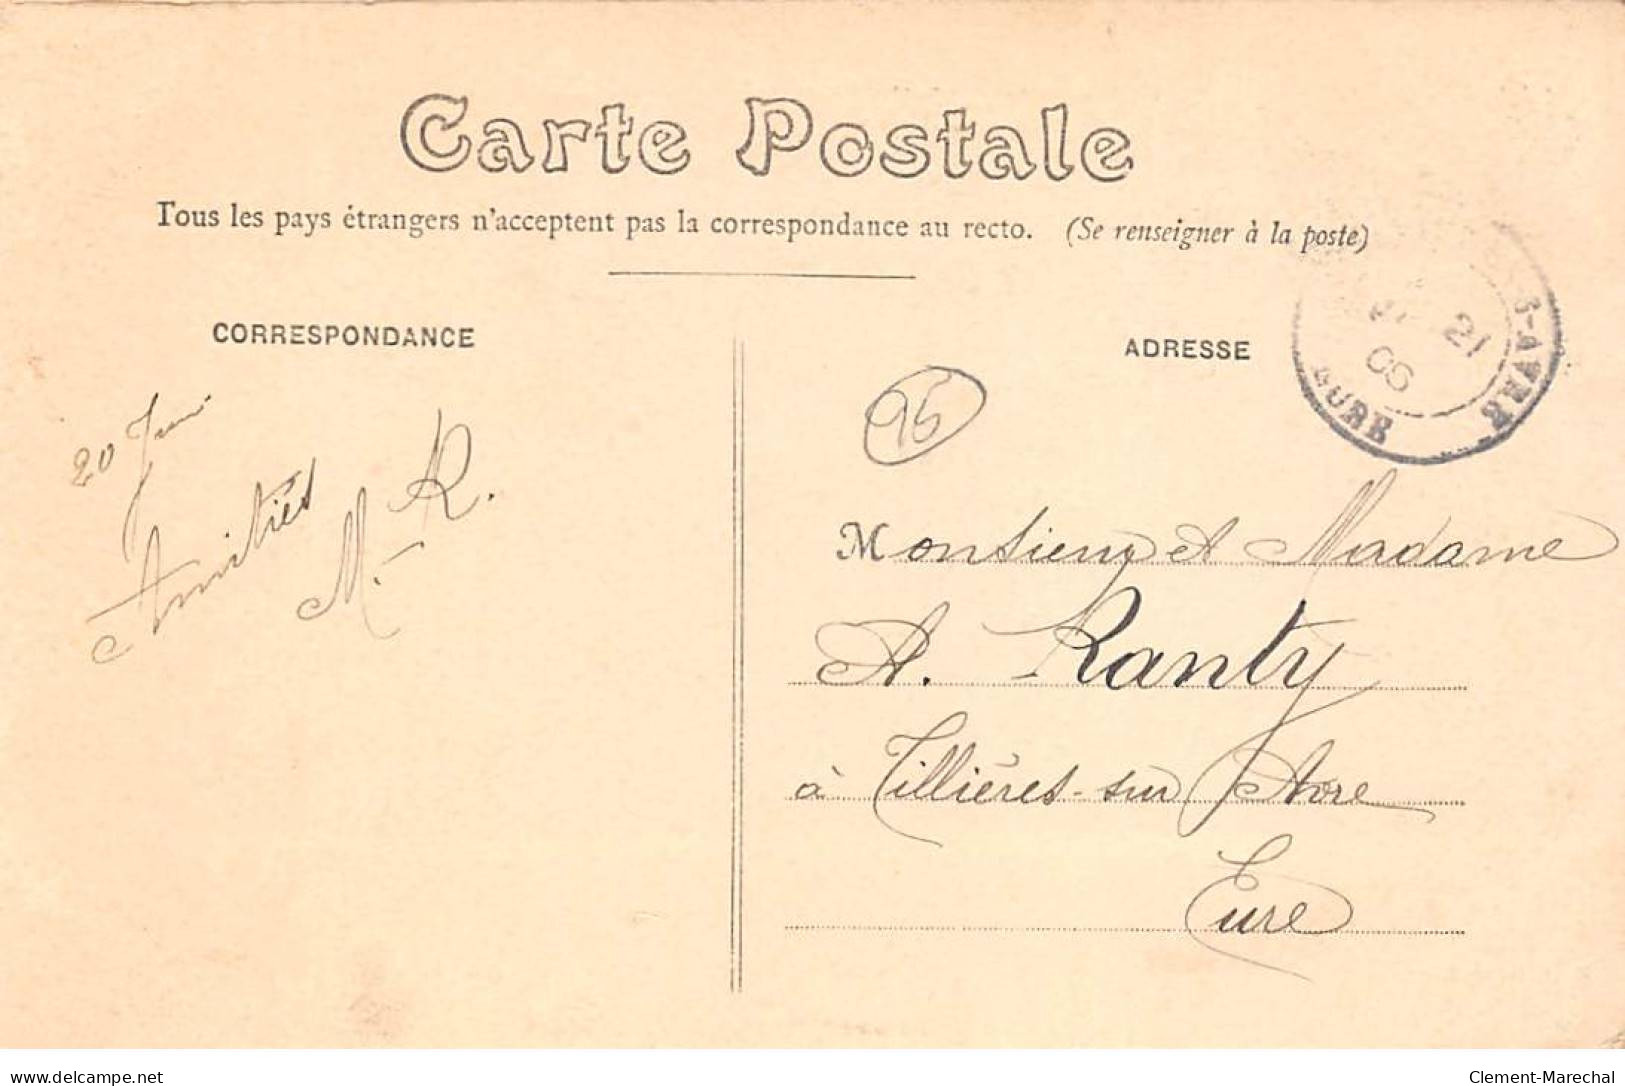 Carte Postale
Tous les pays étrangers n'acceptent pas la correspondance au recto. (Se renseigner à la poste)
CORRESPONDANCE
20 Juin
Amitiés
M. R.
ADRESSE
95
21
05
S-AVRE
EURE
Monsieur et Madame
A. Ranty
à Tillières-sur Avre
Eure
www.delcampe.net
Clement-Marechal